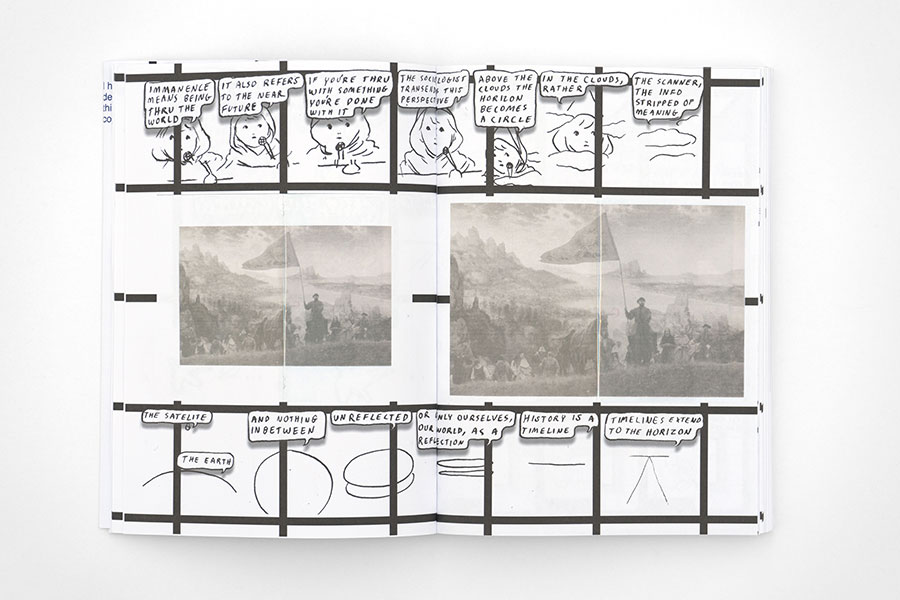 l h
de
thi
co
IMMANENCE
MEANS BEING
THRU THE
WORLD
IT ALSO REFERS
TO THE NEAR
FUTURE
IF YOU'RE THRU
WITH SOMETHING
YOU'RE DONE
WITH IT
THE SOCIOLOGIST
TRANSENDS THIS
PERSPECTIVE
ABOVE THE
CLOUDS THE
HORILON
BECOMES
A CIRCLE
IN THE CLOUDS,
RATHER
THE SCANNER,
THE INFO
STRIPPED OF
MEANING
THE SATELITE
THE EARTH
AND NOTHING
INBETWEEN
UNREFLECTED
OR ONLY OURSELVES,
OUR WORLD, AS A
REFLECTION
HISTORY IS A
TIMELINE
TIMELINES EXTEND
TO THE HORIZON